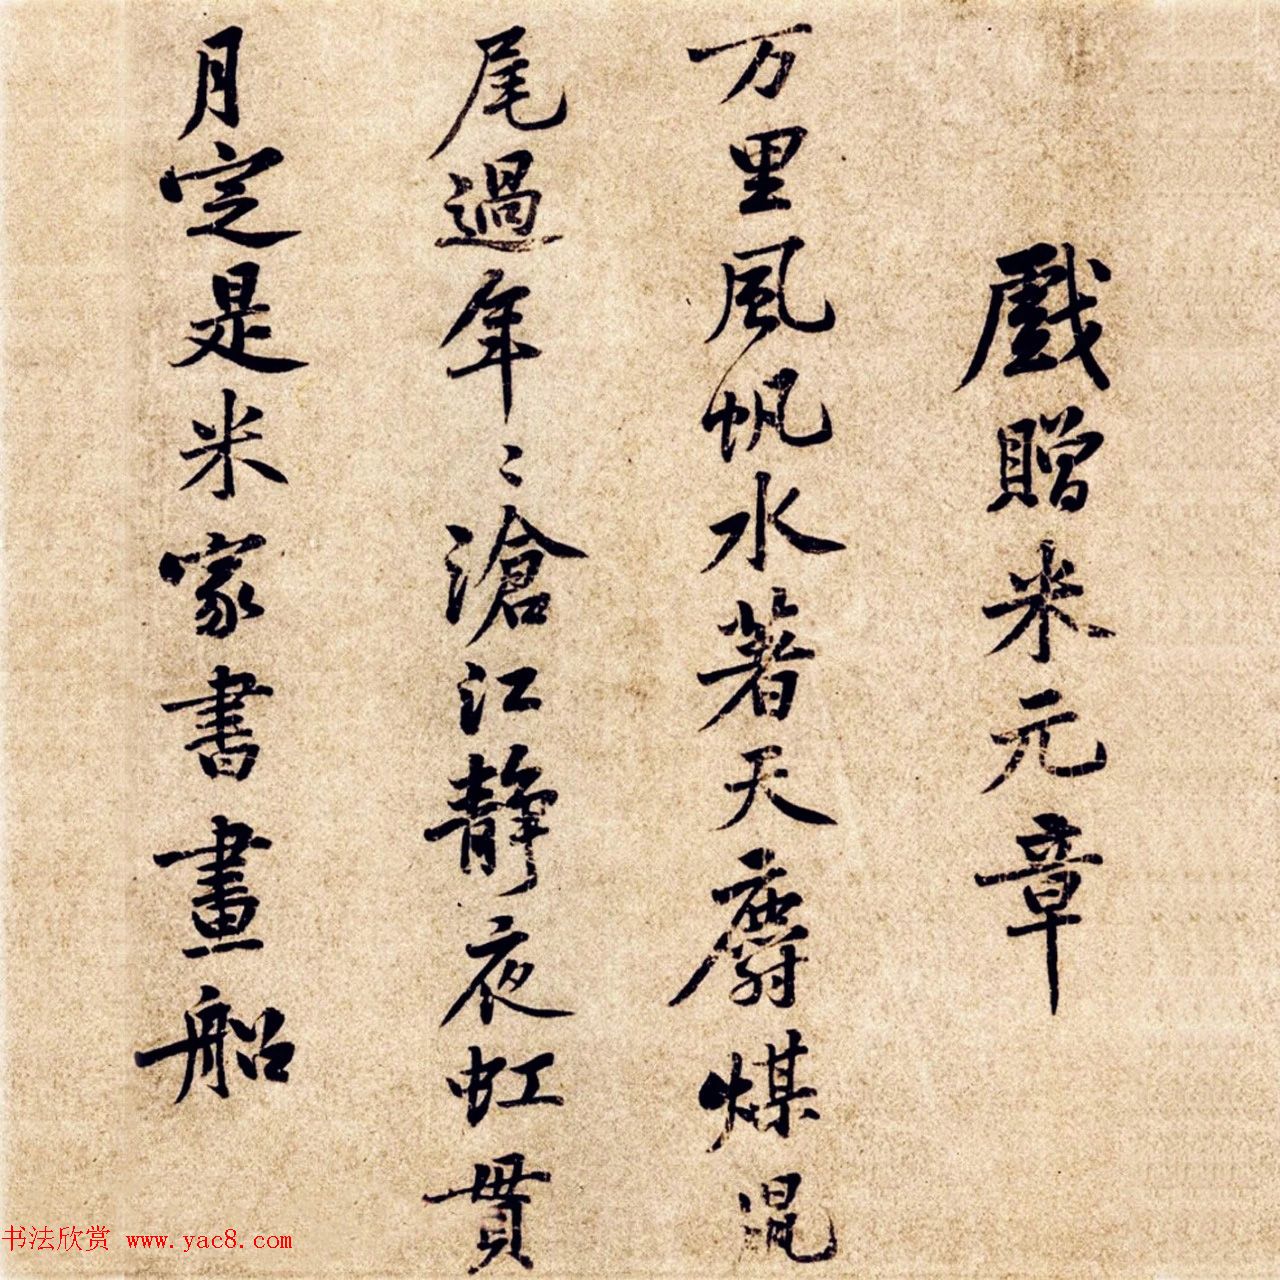 戲贈米元章
万里風帆水著天麝煤鼠
尾過年〻滄江靜夜虹貫
月定是米家書畫船
书法欣赏 www.yac8.com